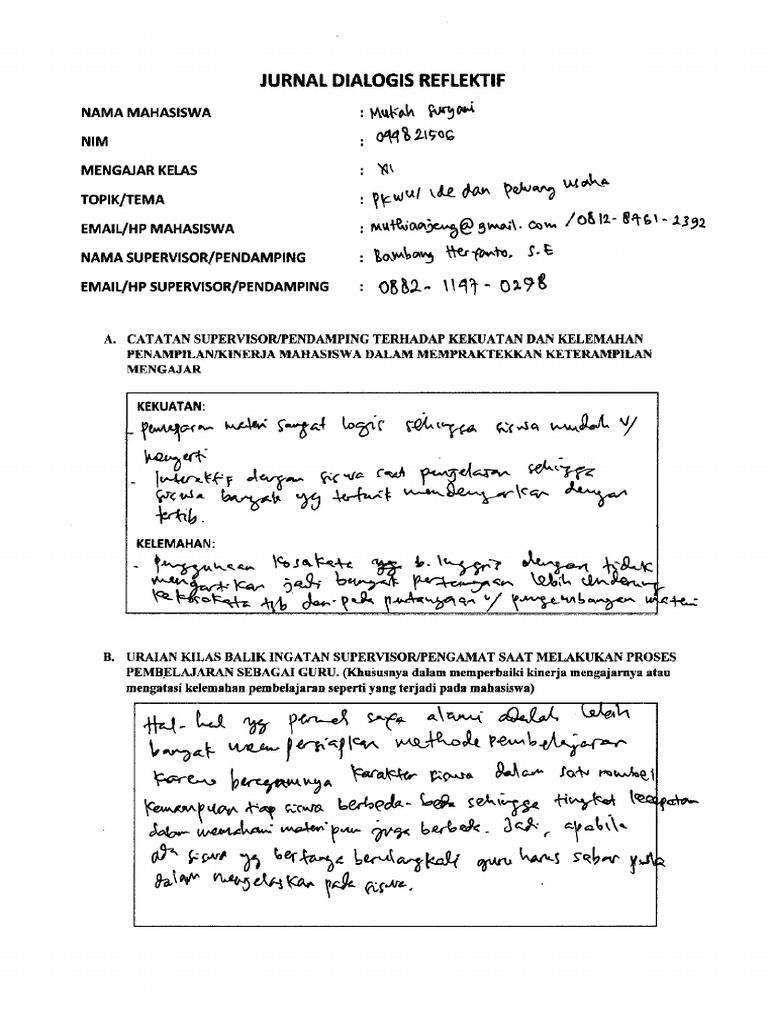 JURNAL DIALOGIS REFLEKTIF
NAMA MAHASISWA : Mutiah Suryani
NIM : 099821506
MENGAJAR KELAS : XI
TOPIK/TEMA : PKWU/ Ide dan Peluang Usaha
EMAIL/HP MAHASISWA : muthiaajeng@gmail.com /0812-8461-2392
NAMA SUPERVISOR/PENDAMPING : Bambang Heryanto, S.E
EMAIL/HP SUPERVISOR/PENDAMPING : 0882-1197-0298
A. CATATAN SUPERVISOR/PENDAMPING TERHADAP KEKUATAN DAN KELEMAHAN
PENAMPILAN/KINERJA MAHASISWA DALAM MEMPRAKTEKKAN KETERAMPILAN
MENGAJAR
KEKUATAN:
- Pemaparan materi sangat logis sehingga siswa mudah u/
mengerti
- Interaktif dengan siswa saat penjelasan sehingga
siswa banyak yg tertarik mendengarkan dengan
tertib.
KELEMAHAN:
- Penggunaan kosakata b. Inggris dengan tidak
mengartikan jadi banyak pertanyaan lebih cenderung
ke kosakata tsb dari pada pertanyaan u/ pengembangan materi
B. URAIAN KILAS BALIK INGATAN SUPERVISOR/PENGAMAT SAAT MELAKUKAN PROSES
PEMBELAJARAN SEBAGAI GURU. (Khususnya dalam memperbaiki kinerja mengajarnya atau
mengatasi kelemahan pembelajaran seperti yang terjadi pada mahasiswa)
Hal-hal yg pernah saya alami adalah lebih
banyak mempersiapkan methode pembelajaran
karena beragamnya karakter siswa dalam satu rombel
kemampuan tiap siswa berbeda-beda sehingga tingkat kecepatan
dalam memahami materi pun juga berbeda. Jadi, apabila
ada siswa yg bertanya berulangkali guru harus sabar pula
dalam menjelaskan pada siswa.